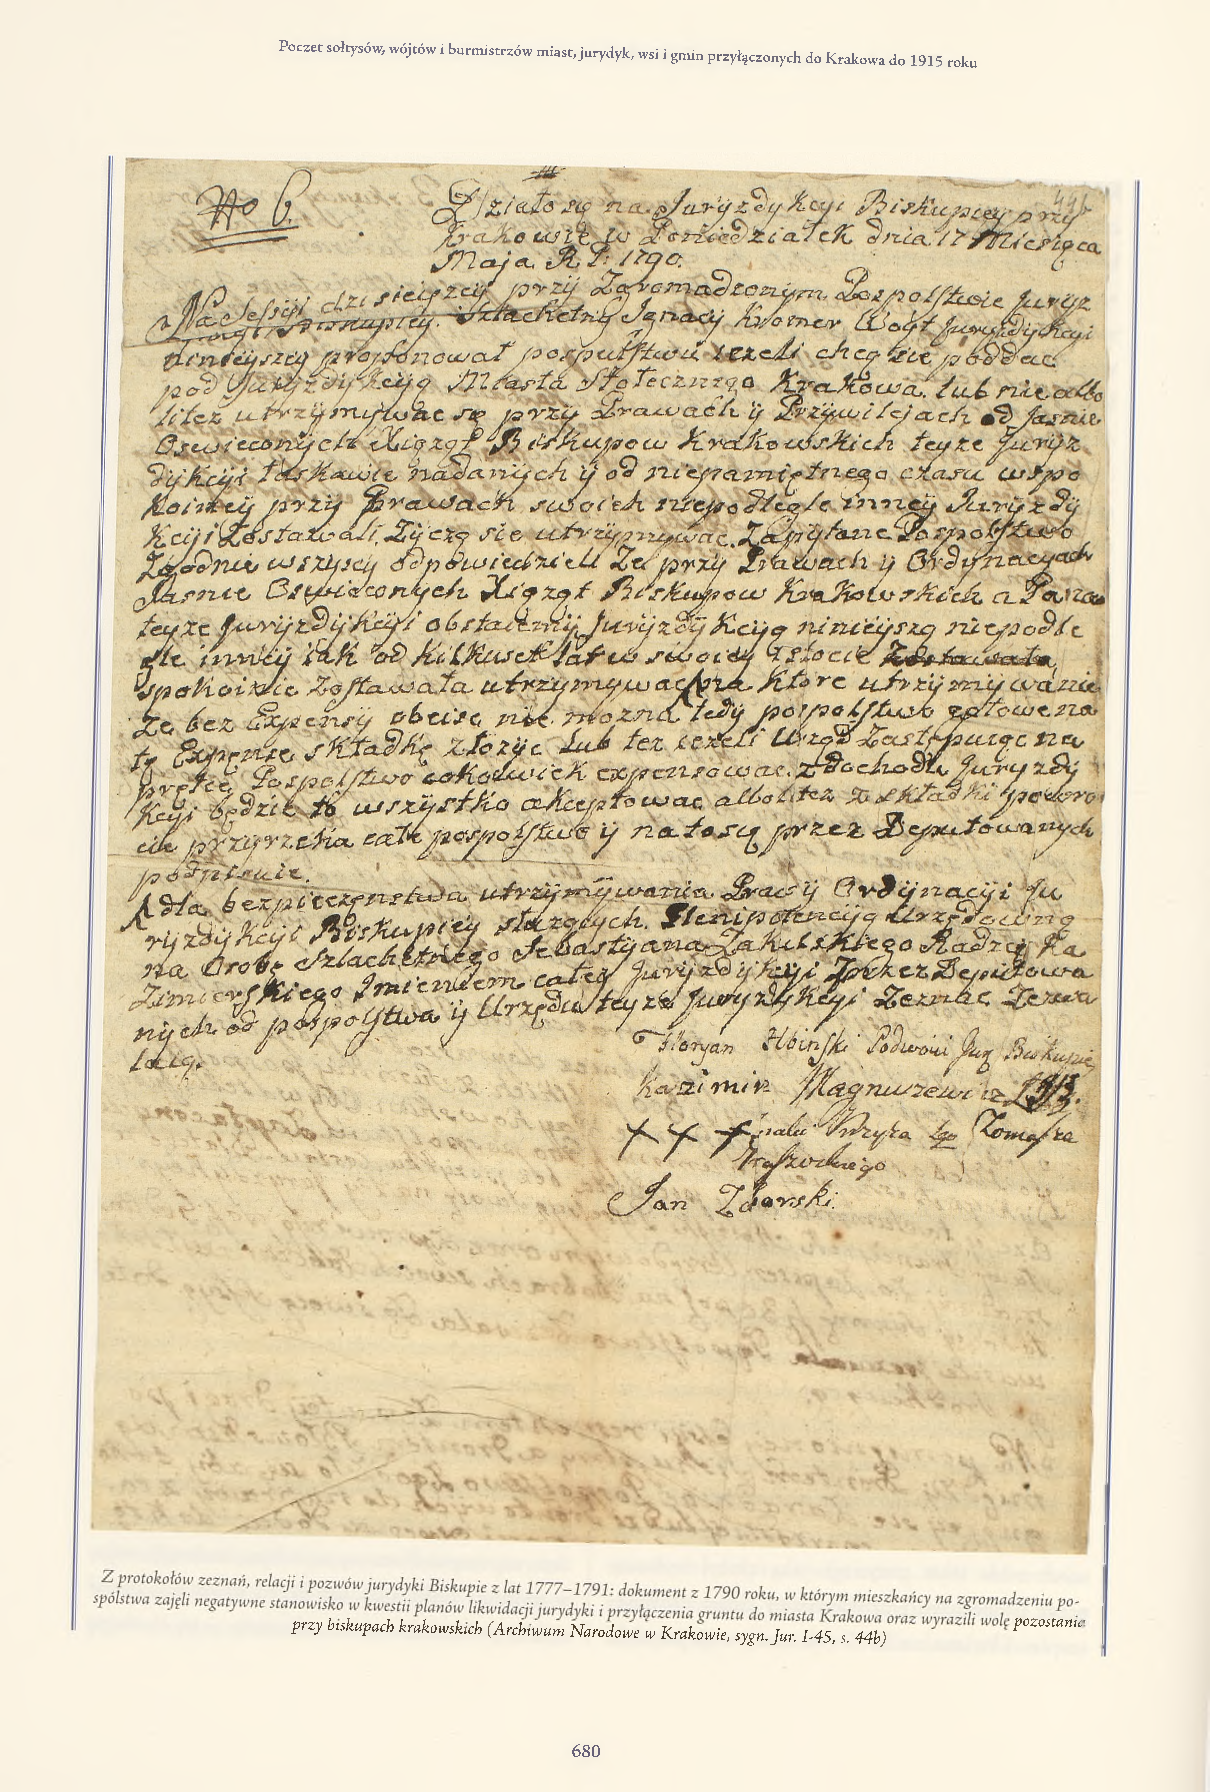 Poczet sołtysów, wójtów i burmistrzów miast, jurydyk, wsi i gmin przyłączonych do Krakowa do 1915 roku
No 6.
44b
Działo się na Juryzdykcyi Biskupiey przy
Krakowie w Poniedziałek dnia 17 Miesiąca
Maja R. P. 1790.
Na Sessyi dzisieiszey przy Zgromadzonym Pospolstwie Juryz
dykcyi Biskupiey. Szlachetny Ignacy Kromer Woyt Juryzdykcyi
ninieyszey proponował pospulstwu ieżeli chcą się poddac
pod Juryzdykcyą Miasta Stołecznego Krakowa lub nie albo
litez utrzymywac się przy Prawach y Przywilejach od Jasnie
Oswieconych Xiąząt Biskupow Krakowskich teyze Juryz
dykcyi łaskawie nadanych y od niepamiętnego czasu wspo
koiney przy Prawach swoich niepodległe inney Juryzdy
kcyi Zostawali Zyczą się utrzymywac. Zapytane Pospolstwo
Zgodnie wszyscy odpowiedzieli Ze przy Prawach y Ordynacyach
Jasnie Oswieconych Xiąząt Biskupow Krakowskich a Pana
teyze Juryzdykcyi obstaiemy Juryzdykcyą ninieyszą niepodle
głe inney iak od kilkuset lat w swoiey istocie
spokoinie Zostawała utrzymywac na ktore utrzymywanie
ze bez Expensy obeisc nie mozna tedy pospolstwo gotowe na
tę Expensę składkę złozyc lub tez iezeli Urząd Zastępuiąc na
prętce Pospolstwo cokolwiek expensowac z dochodu Juryzdy
kcyi będzie to wszystko akceptowac albolitez z składki powro
cic przyrzeka całe pospolstwo y na to się przez Deputowanych
podpisuie.
dla bezpieczenstwa utrzymywania Praw y Ordynacyi Ju
ryzdykcyi Biskupiey słuzących. Plenipotencyą Urzędowną
na Osobę Szlachetnego Sebastyana Zakulskiego Radzcy Ka
zimierskiego Imieniem całey Juryzdykcyi przez Deputowa
nych od pospolstwa y Urzędu teyze Juryzdykcyi Zeznac Zezwa
laią.
Floryan Podwoyci Jur Biskupiey
Kazimirz Magnuszewicz
+ + +
Jan Zborski.
Z protokołów zeznań, relacji i pozwów jurydyki Biskupie z lat 1777–1791: dokument z 1790 roku, w którym mieszkańcy na zgromadzeniu po-
spólstwa zajęli negatywne stanowisko w kwestii planów likwidacji jurydyki i przyłączenia gruntu do miasta Krakowa oraz wyrazili wolę pozostania
przy biskupach krakowskich (Archiwum Narodowe w Krakowie, sygn. Jur. I-45, s. 44b)
680